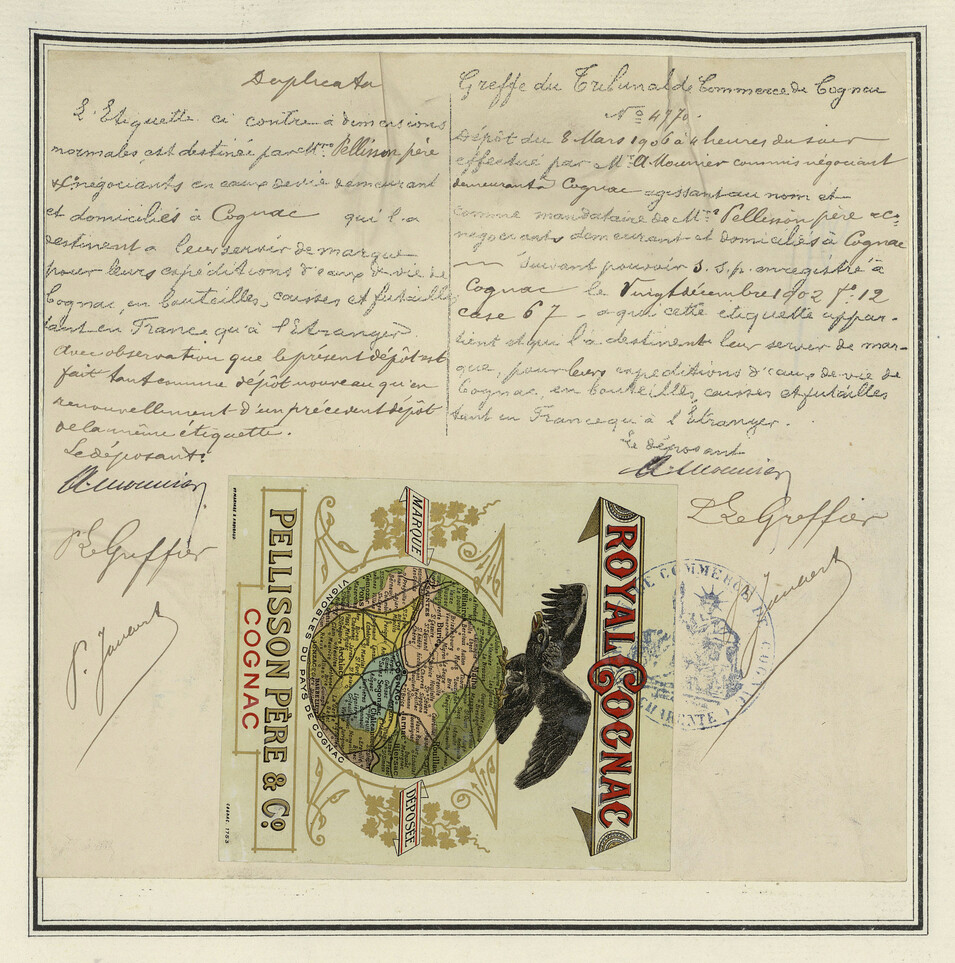 Duplicata
L'Etiquette ci contre à dimensions
normales, est destinée par M.rs Pellisson père
& Co négociants en eaux de vie demeurant
et domiciliés à Cognac qui l'a
destinent a leur servir de marque
pour leurs expéditions d'eaux de vie de
Cognac, en bouteilles, caisses et futailles
tant en France qu'à l'Etranger.
Avec observation que le présent dépôt est
fait tant comme dépôt nouveau qu'en
renouvellement d'un précédent dépôt
de la même étiquette.
Le déposant:
A. Mounier
P. Le Greffier
Greffe du Tribunal de Commerce de Cognac
No 4770.
Dépôt du 8 Mars 1906 à 4 heures du soir
effectué par Mr A Mounier commis négociant
demeurant à Cognac agissant au nom et
comme mandataire de M.rs Pellisson père & Co
négociants demeurant et domiciliés à Cognac
Suivant pouvoir s.s.p. enregistré à
Cognac le Vingt décembre 1902 Fo 12
case 67 - a qui cette étiquette appar-
tient et qui l'a destinent leur servir de mar-
que, pour leurs expéditions d'eaux de vie de
Cognac, en bouteilles, caisses et futailles
tant en France qu'à l'Etranger.
Le déposant
A. Mounier
P. Le Greffier
ROYAL COGNAC
MARQUE
DÉPOSÉE
VIGNOBLES DU PAYS DE COGNAC
PELLISSON PÈRE & Co.
COGNAC
DE COMMERCE DE COGNAC
CHARENTE